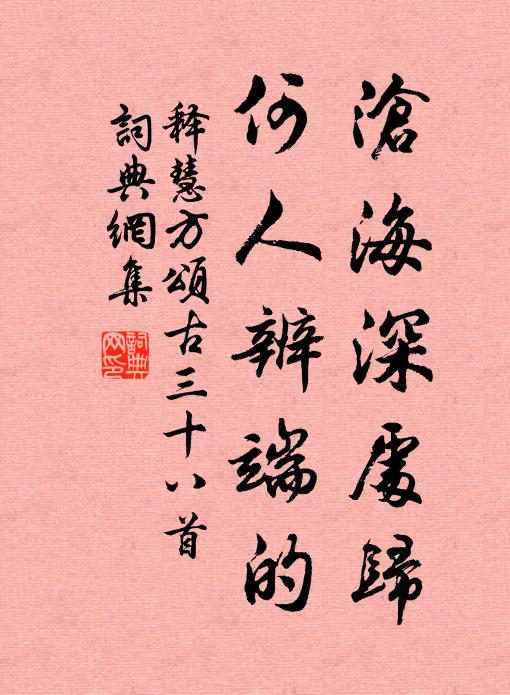 滄海深處歸
何人辨端的
释慧方頌古三十八首
詞典網集
詞典
网印